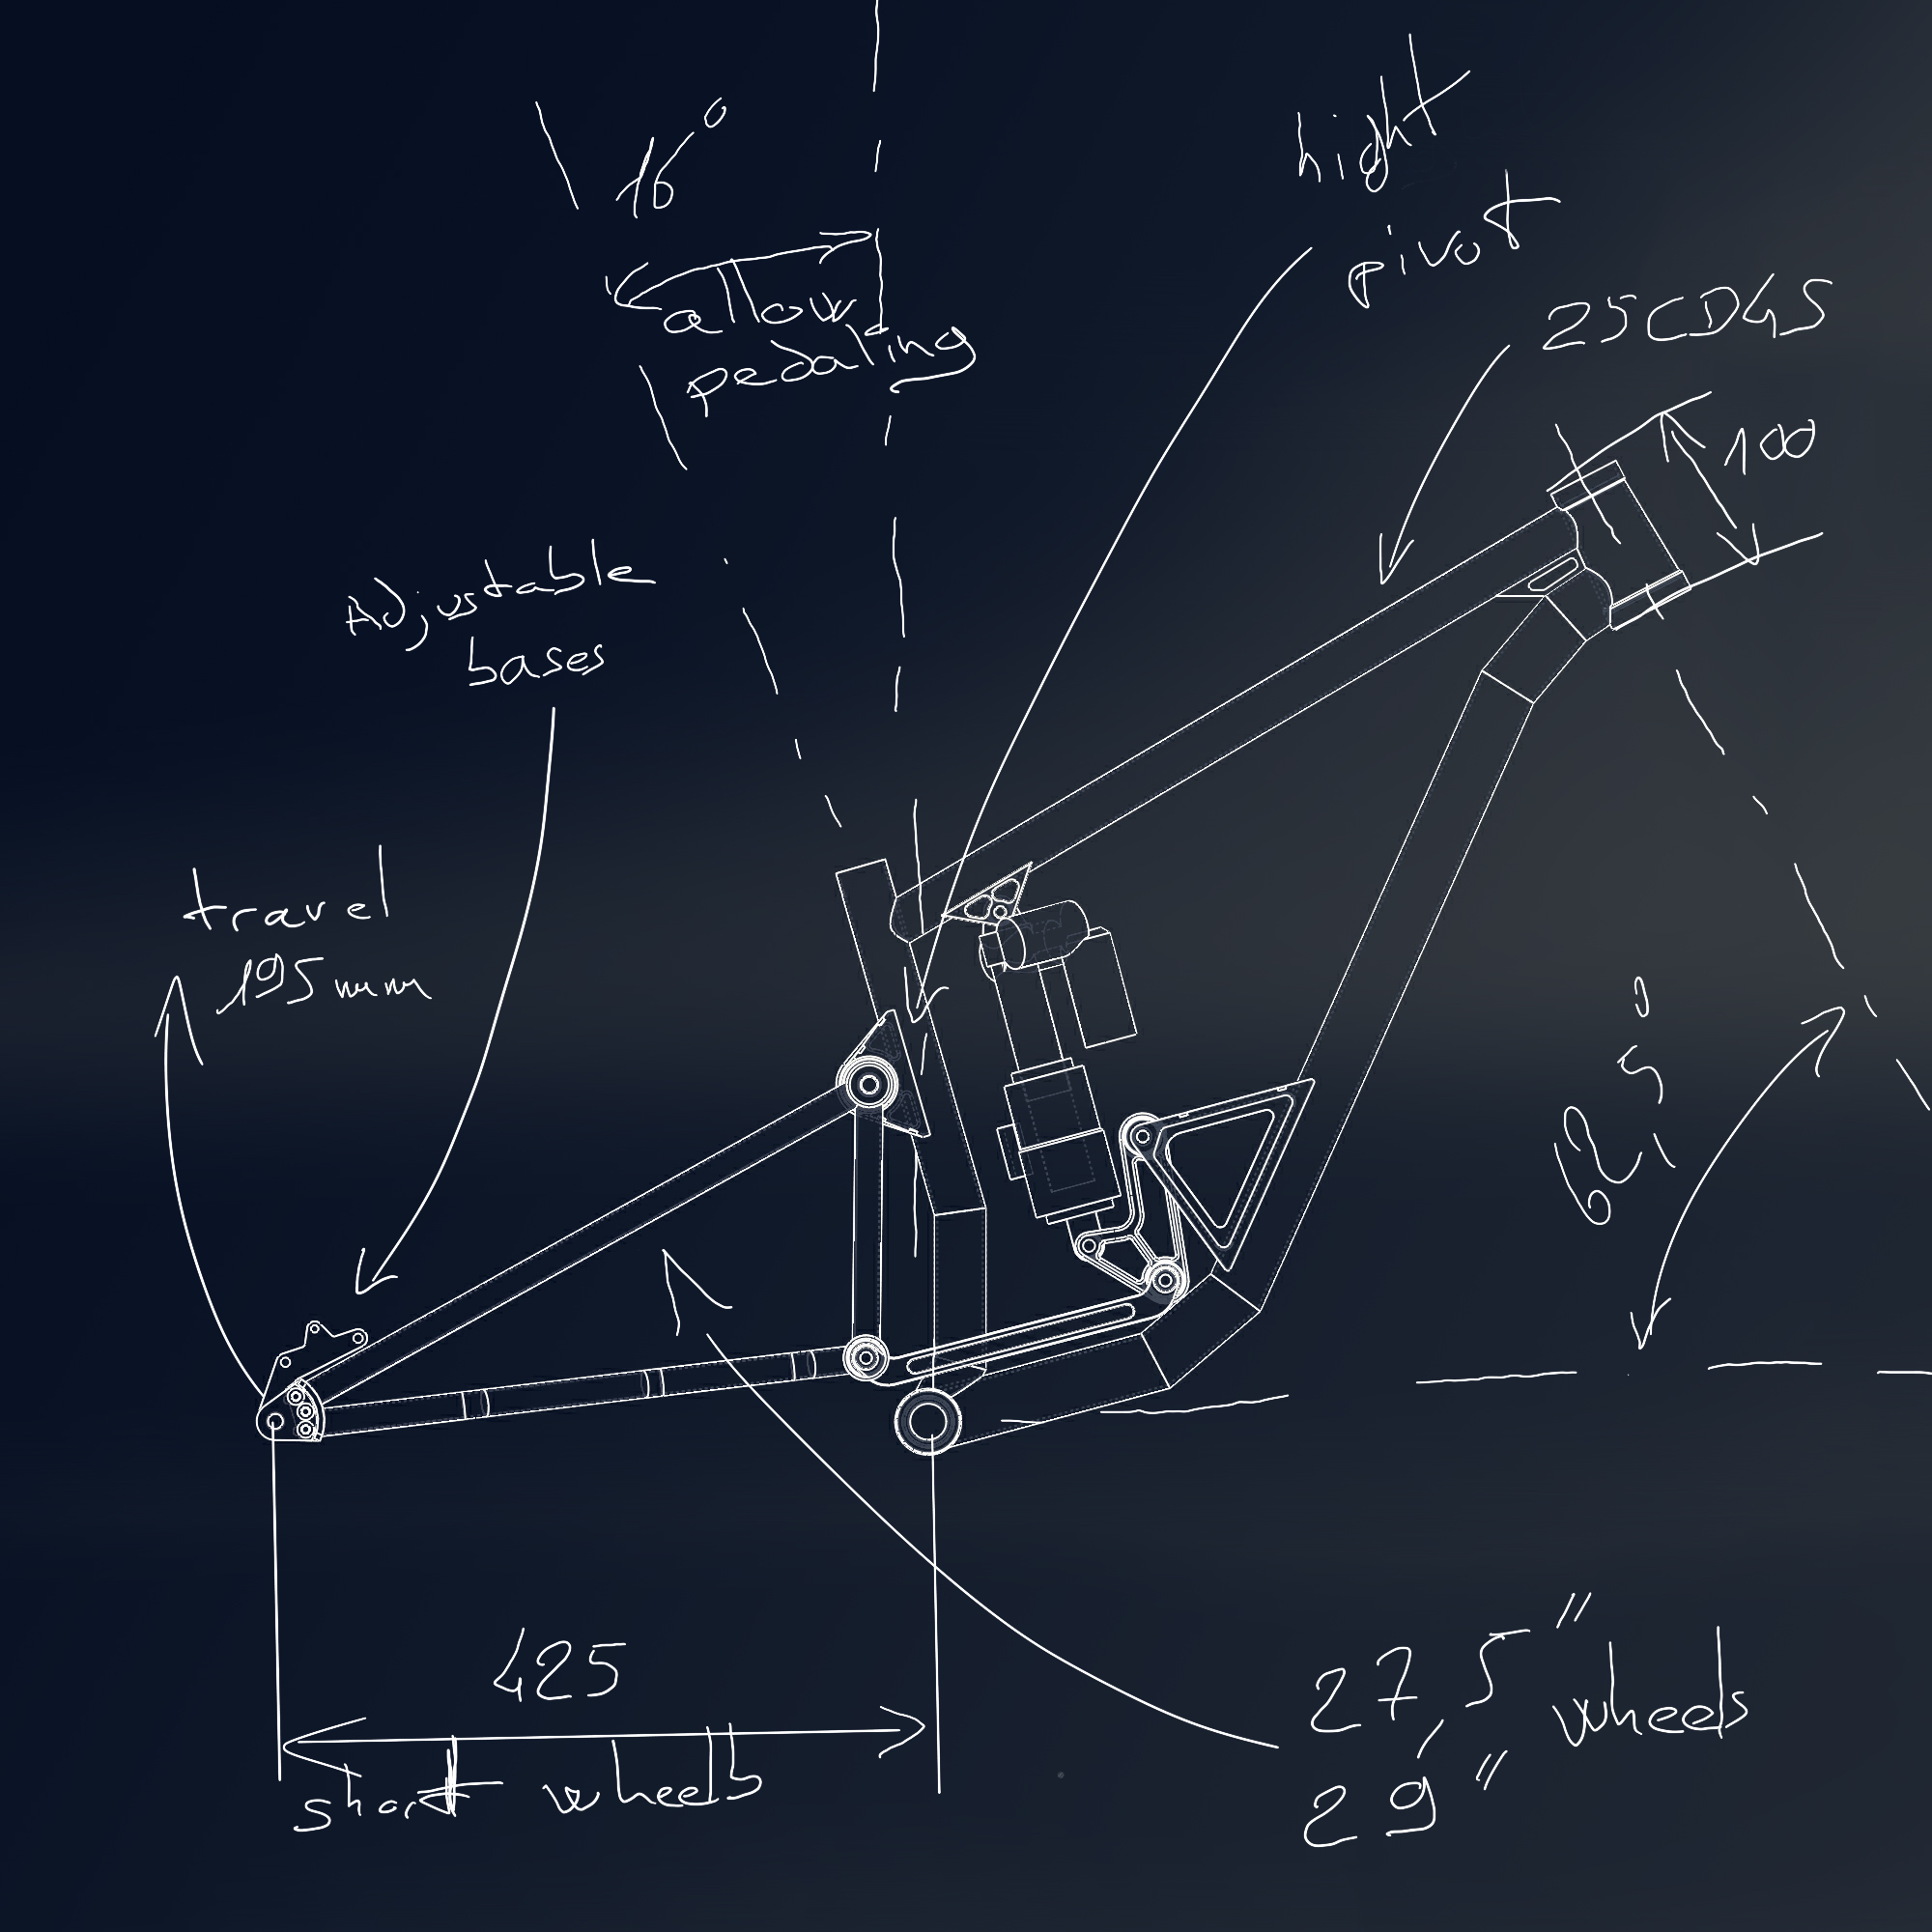 16°
allow
pedaling
hight
pivot
25CD4S
100
Adjustable
bases
travel
195mm
62,5°
425
short wheels
27,5" wheels
29"